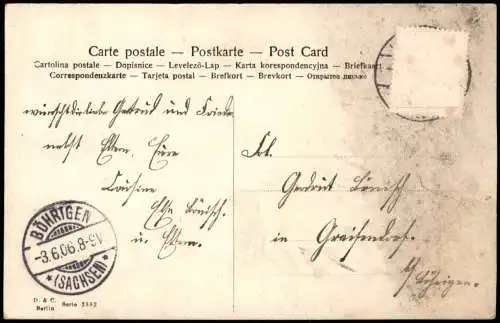 Carte postale — Postkarte — Post Card
Cartolina postale — Dopisnice — Levelező-Lap — Karta korespondencyjna — Briefkaart
Correspondenzkarte — Tarjeta postal — Brefkort — Brevkort — Открытое письмо
wünscht die liebe Gertrud und Frieda
nebst Eltern, Eure
Cousine
Else
u. Eltern.
Frl.
Gertrud
in Greifendorf.
b/ Böhrigen.
BÖHRIGEN
-3.6.06.8-9V
* (SACHSEN) *
D. & C. Serie 2382
Berlin